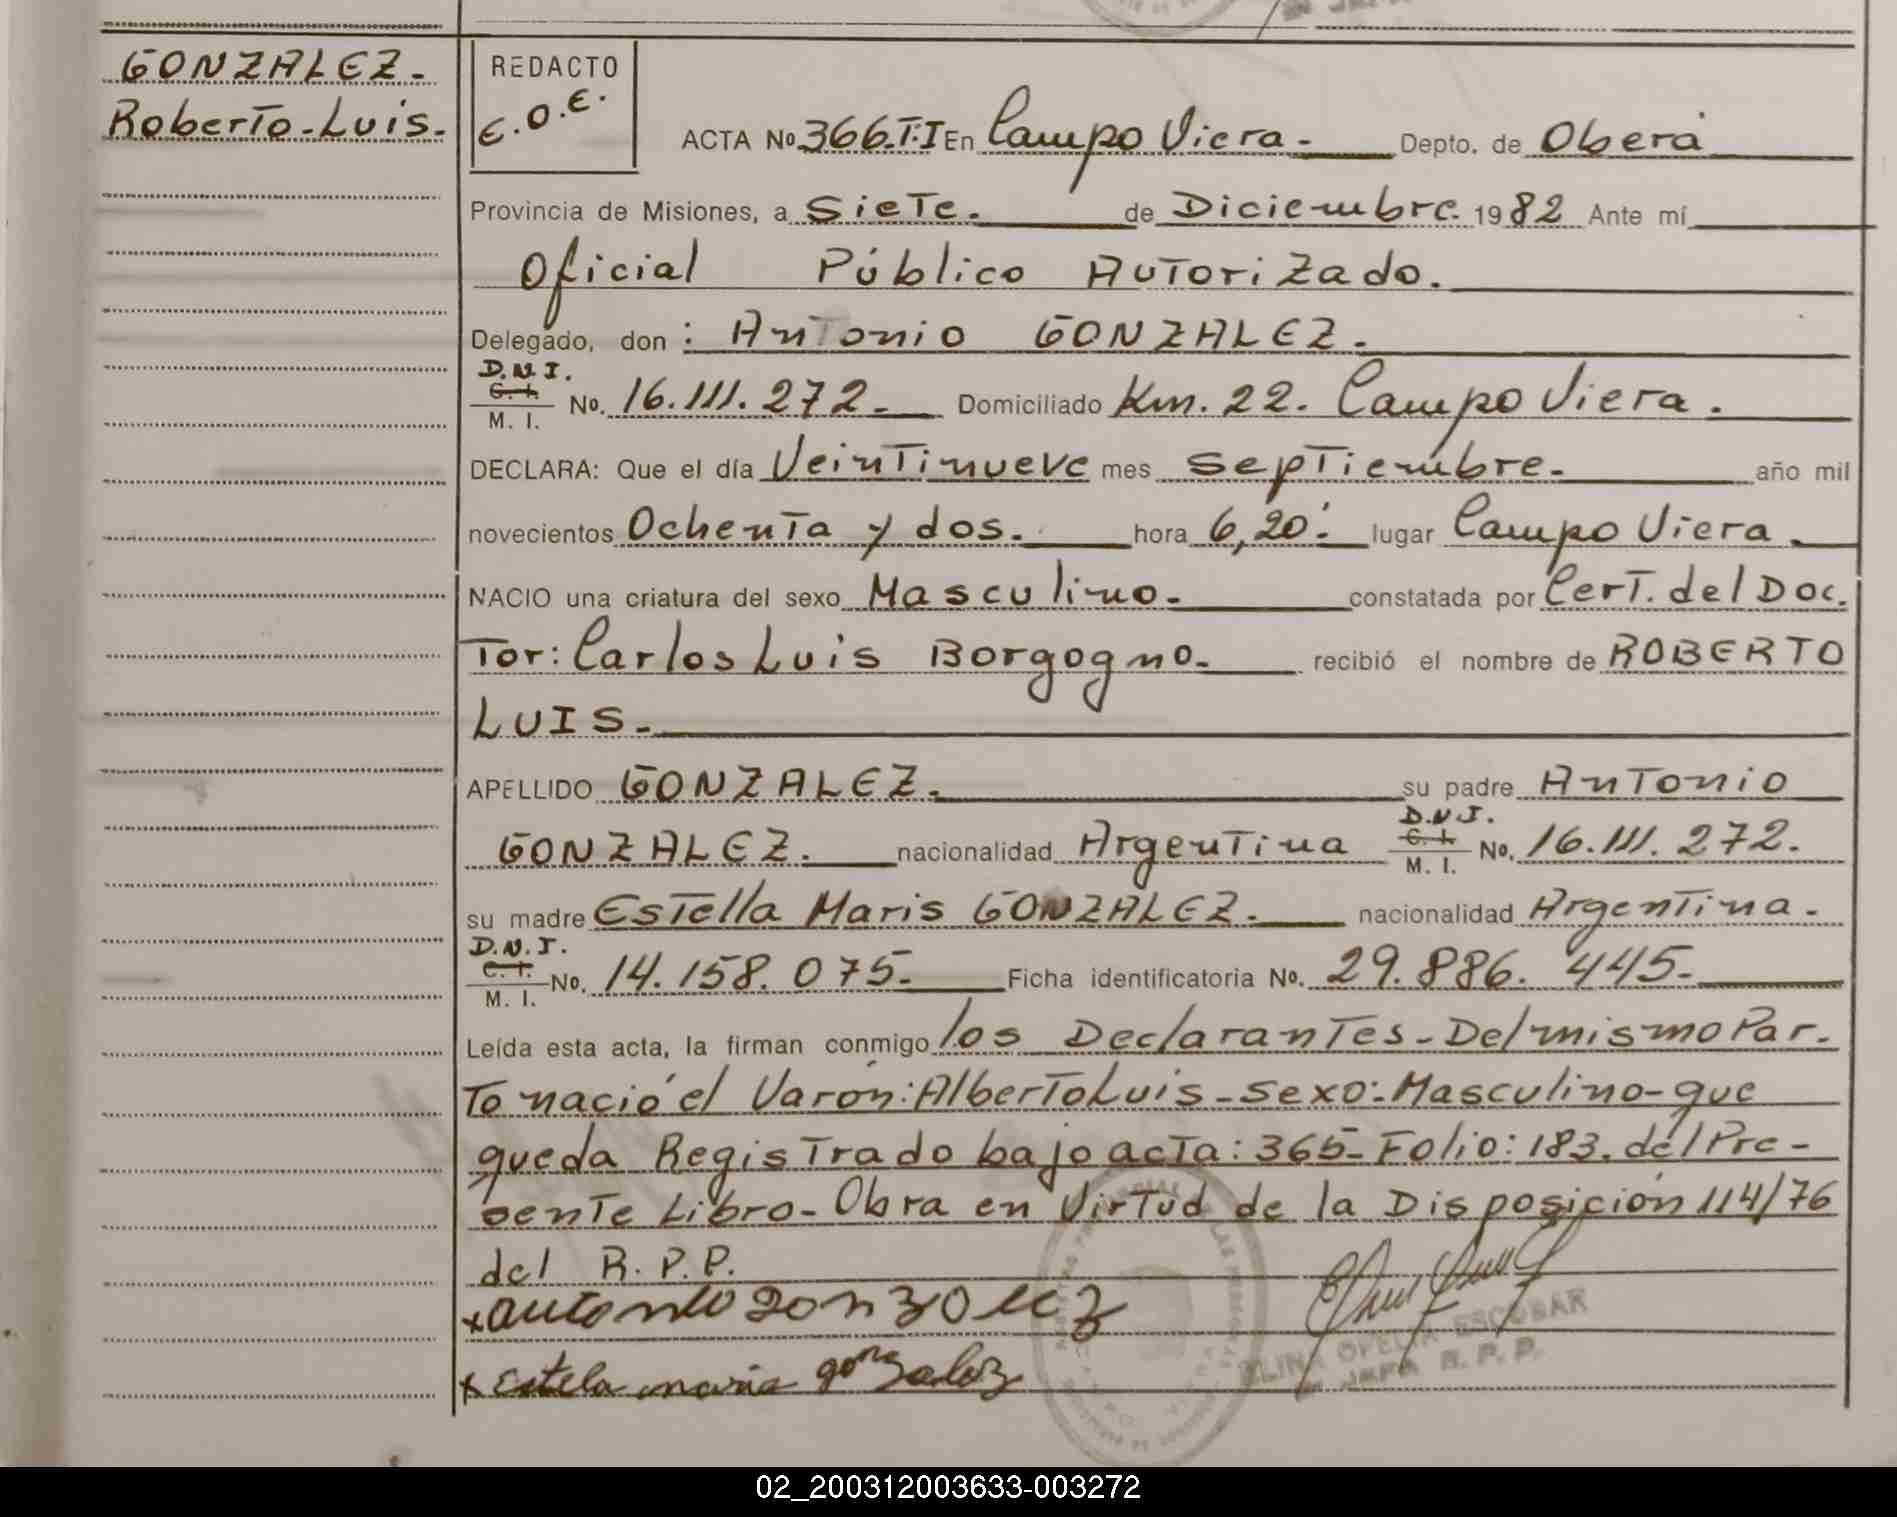 GONZALEZ.
Roberto-Luis.
REDACTO
E.O.E.
ACTA No 366.T.I En Campo Viera. Depto. de Oberá
Provincia de Misiones, a Siete. de Diciembre. 1982 Ante mí
Oficial Público Autorizado.
Delegado, don : Antonio GONZALEZ.
D.N.I.
C. I. No. 16.111.272. Domiciliado Km. 22. Campo Viera.
M. I.
DECLARA: Que el día Veintinueve mes septiembre. año mil
novecientos Ochenta y dos. hora 6,20'. lugar Campo Viera.
NACIO una criatura del sexo Masculino. constatada por Cert. del Doc.
Tor: Carlos Luis Borgogno. recibió el nombre de ROBERTO
LUIS.
APELLIDO GONZALEZ. su padre Antonio
D.N.I.
GONZALEZ. nacionalidad Argentina C. I. No. 16.111.272.
M. I.
su madre Estella Maris GONZALEZ. nacionalidad Argentina.
D.N.I.
C. I. No. 14.158.075. Ficha identificatoria No. 29.886.445.
M. I.
Leída esta acta, la firman conmigo los Declarantes-Del mismo Par.
To nació el Varón: Alberto Luis-sexo: Masculino-que
queda Registrado bajo acta: 365-Folio: 183. del Pre-
sente Libro-Obra en Virtud de la Disposición 114/76
del R.P.P.
x antonio gonzalez
x Estela maria gonzalez
OFELIA ESCOBAR
R. P. P.
02_200312003633-003272